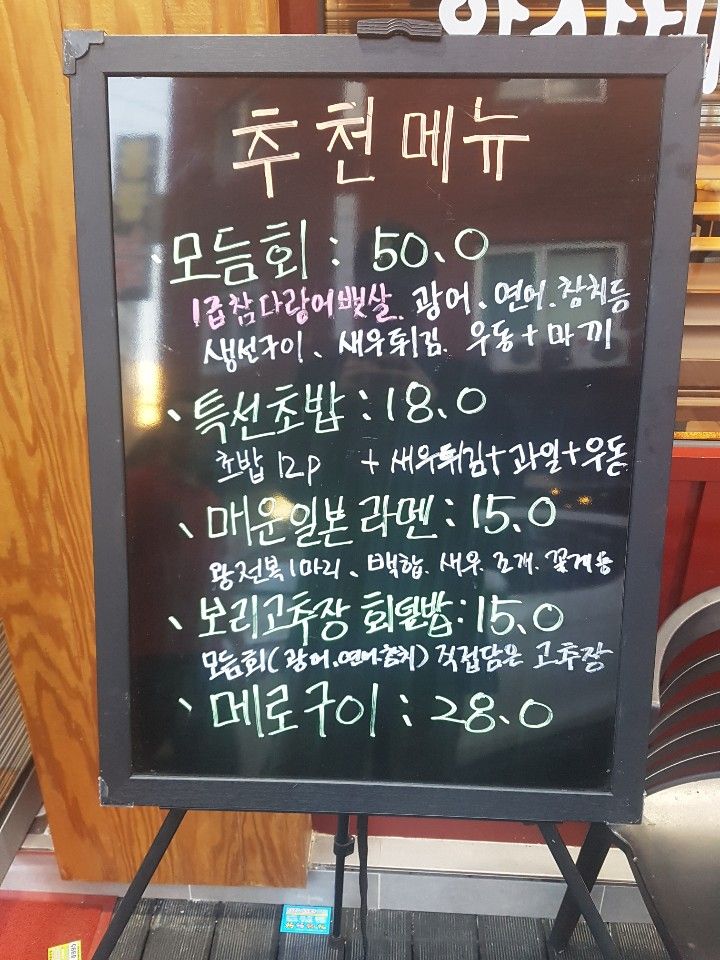 추천메뉴
모듬회 : 50.0
1급참다랑어뱃살. 광어. 연어. 참치등
생선구이. 새우튀김. 우동+마끼
특선초밥 : 18.0
초밥 12p + 새우튀김+과일+우동
매운일본라멘 : 15.0
왕전복1마리. 백합. 새우. 조개. 꽃게등
보리고추장 회덮밥 : 15.0
모듬회(광어.연어.참치) 직접담은 고추장
메로구이 : 28.0